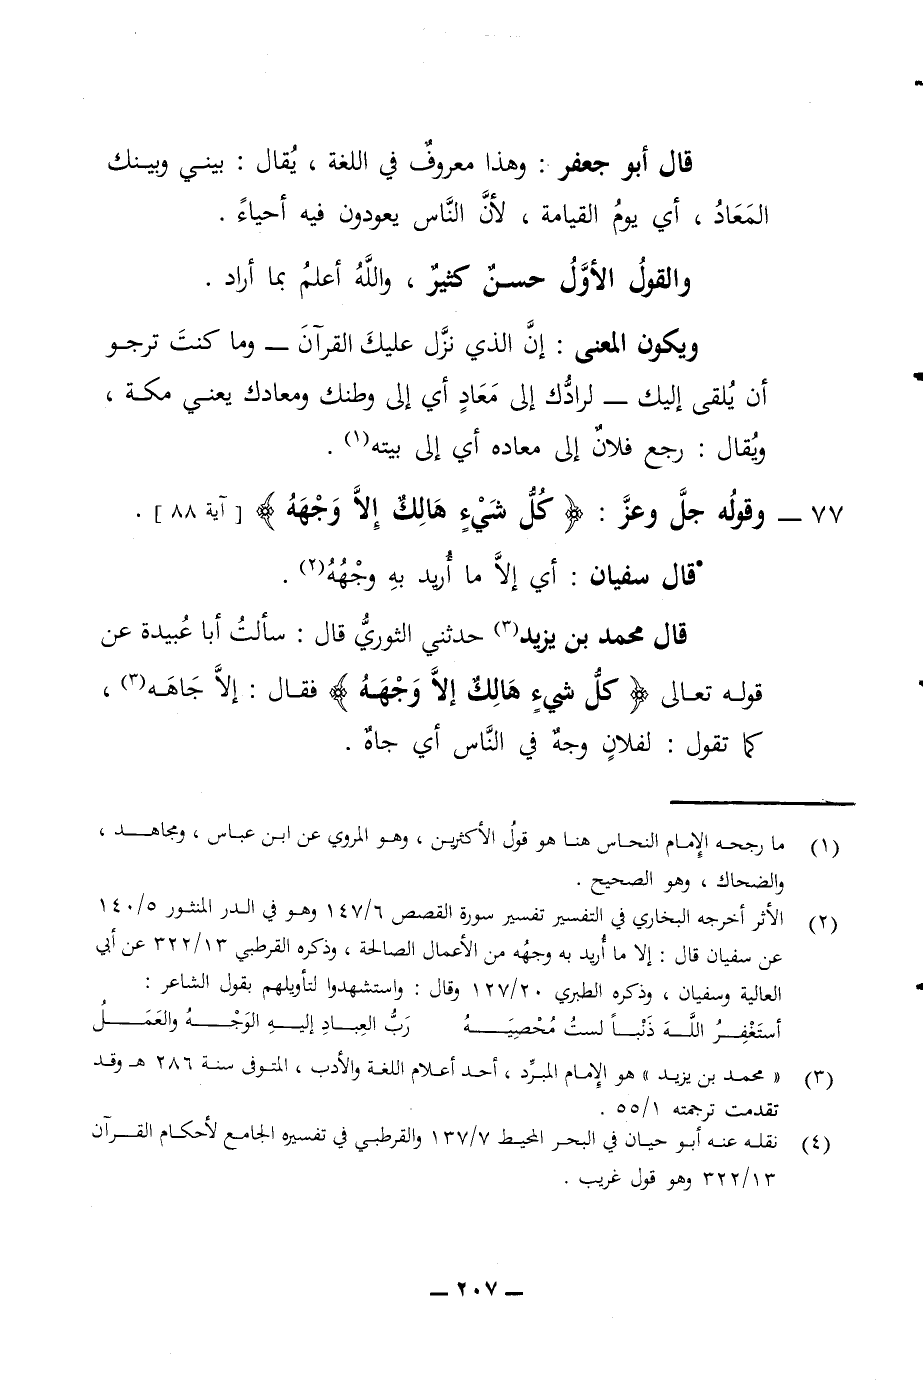 قال أبو جعفر : وهذا معروفٌ في اللغة ، يُقال : بيني وبينك
المَعَادُ ، أي يومُ القيامة ، لأنَّ النَّاس يعودون فيه أحياءً .
والقولُ الأوَّلُ حسنٌ كثيرٌ ، واللَّهُ أعلمُ بما أراد .
ويكون المعنى : إنَّ الذي نزَّل عليكَ القرآنَ ــ وما كنتَ ترجو
أن يُلقى إليك ــ لرادُّك إلى مَعَادٍ أي إلى وطنك ومعادك يعني مكة ،
ويُقال : رجع فلانٌ إلى معاده أي إلى بيته(١) .
٧٧ ــ وقولُه جلَّ وعزَّ : ﴿ كُلُّ شَيْءٍ هَالِكٌ إِلاَّ وَجْهَهُ ﴾ [ آية ٨٨ ] .
قال سفيان : أي إلاَّ ما أُريد بهِ وجْهُهُ(٢) .
قال محمد بن يزيد(٣) حدثني الثوريُّ قال : سألتُ أبا عُبيدة عن
قوله تعالى ﴿ كلُّ شيءٍ هَالِكٌ إلاَّ وَجْهَهُ ﴾ فقال : إلاَّ جَاهَه(٣) ،
كما تقول : لفلانٍ وجهٌ في النَّاس أي جاهٌ .
(١) ما رجحه الإمام النحاس هنا هو قولُ الأكثرين ، وهو المروي عن ابن عباس ، ومجاهد ،
والضحاك ، وهو الصحيح .
(٢) الأثر أخرجه البخاري في التفسير تفسير سورة القصص ١٤٧/٦ وهو في الدر المنثور ١٤٠/٥
عن سفيان قال : إلا ما أُريد به وجهُه من الأعمال الصالحة ، وذكره القرطبي ٣٢٢/١٣ عن أبي
العالية وسفيان ، وذكره الطبري ١٢٧/٢٠ وقال : واستشهدوا لتأويلهم بقول الشاعر :
أستَغْفِرُ اللَّهَ ذَنْباً لستُ مُحْصِيَهُ رَبُّ العِبادِ إليهِ الوَجْهُ والعَمَلُ
(٣) « محمد بن يزيد » هو الإمام المبرِّد ، أحد أعلام اللغة والأدب ، المتوفى سنة ٢٨٦ هـ وقد
تقدمت ترجمته ٥٥/١ .
(٤) نقله عنه أبو حيان في البحر المحيط ١٣٧/٧ والقرطبي في تفسيره الجامع لأحكام القرآن
٣٢٢/١٣ وهو قول غريب .
ــ ٢٠٧ ــ